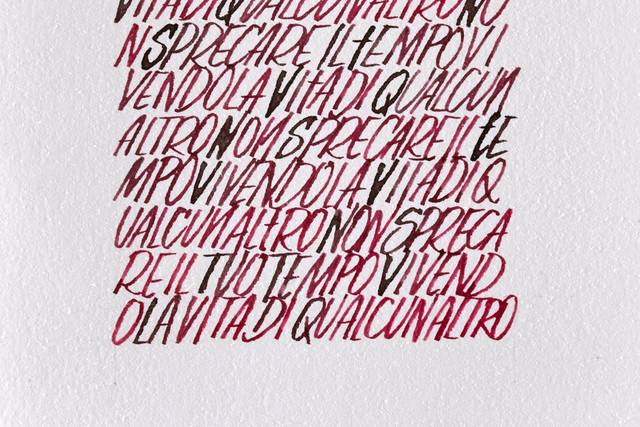 VITADIQUALCUNALTRONO
NSPRECAREILTEMPOVI
VENDOLAVITADIQUALCUN
ALTRONONSPRECAREILTE
MPOVIVENDOLAVITADIQ
UALCUNALTRONONSPRECA
REILTUOTEMPOVIVEND
OLAVITADIQUALCUNALTRO